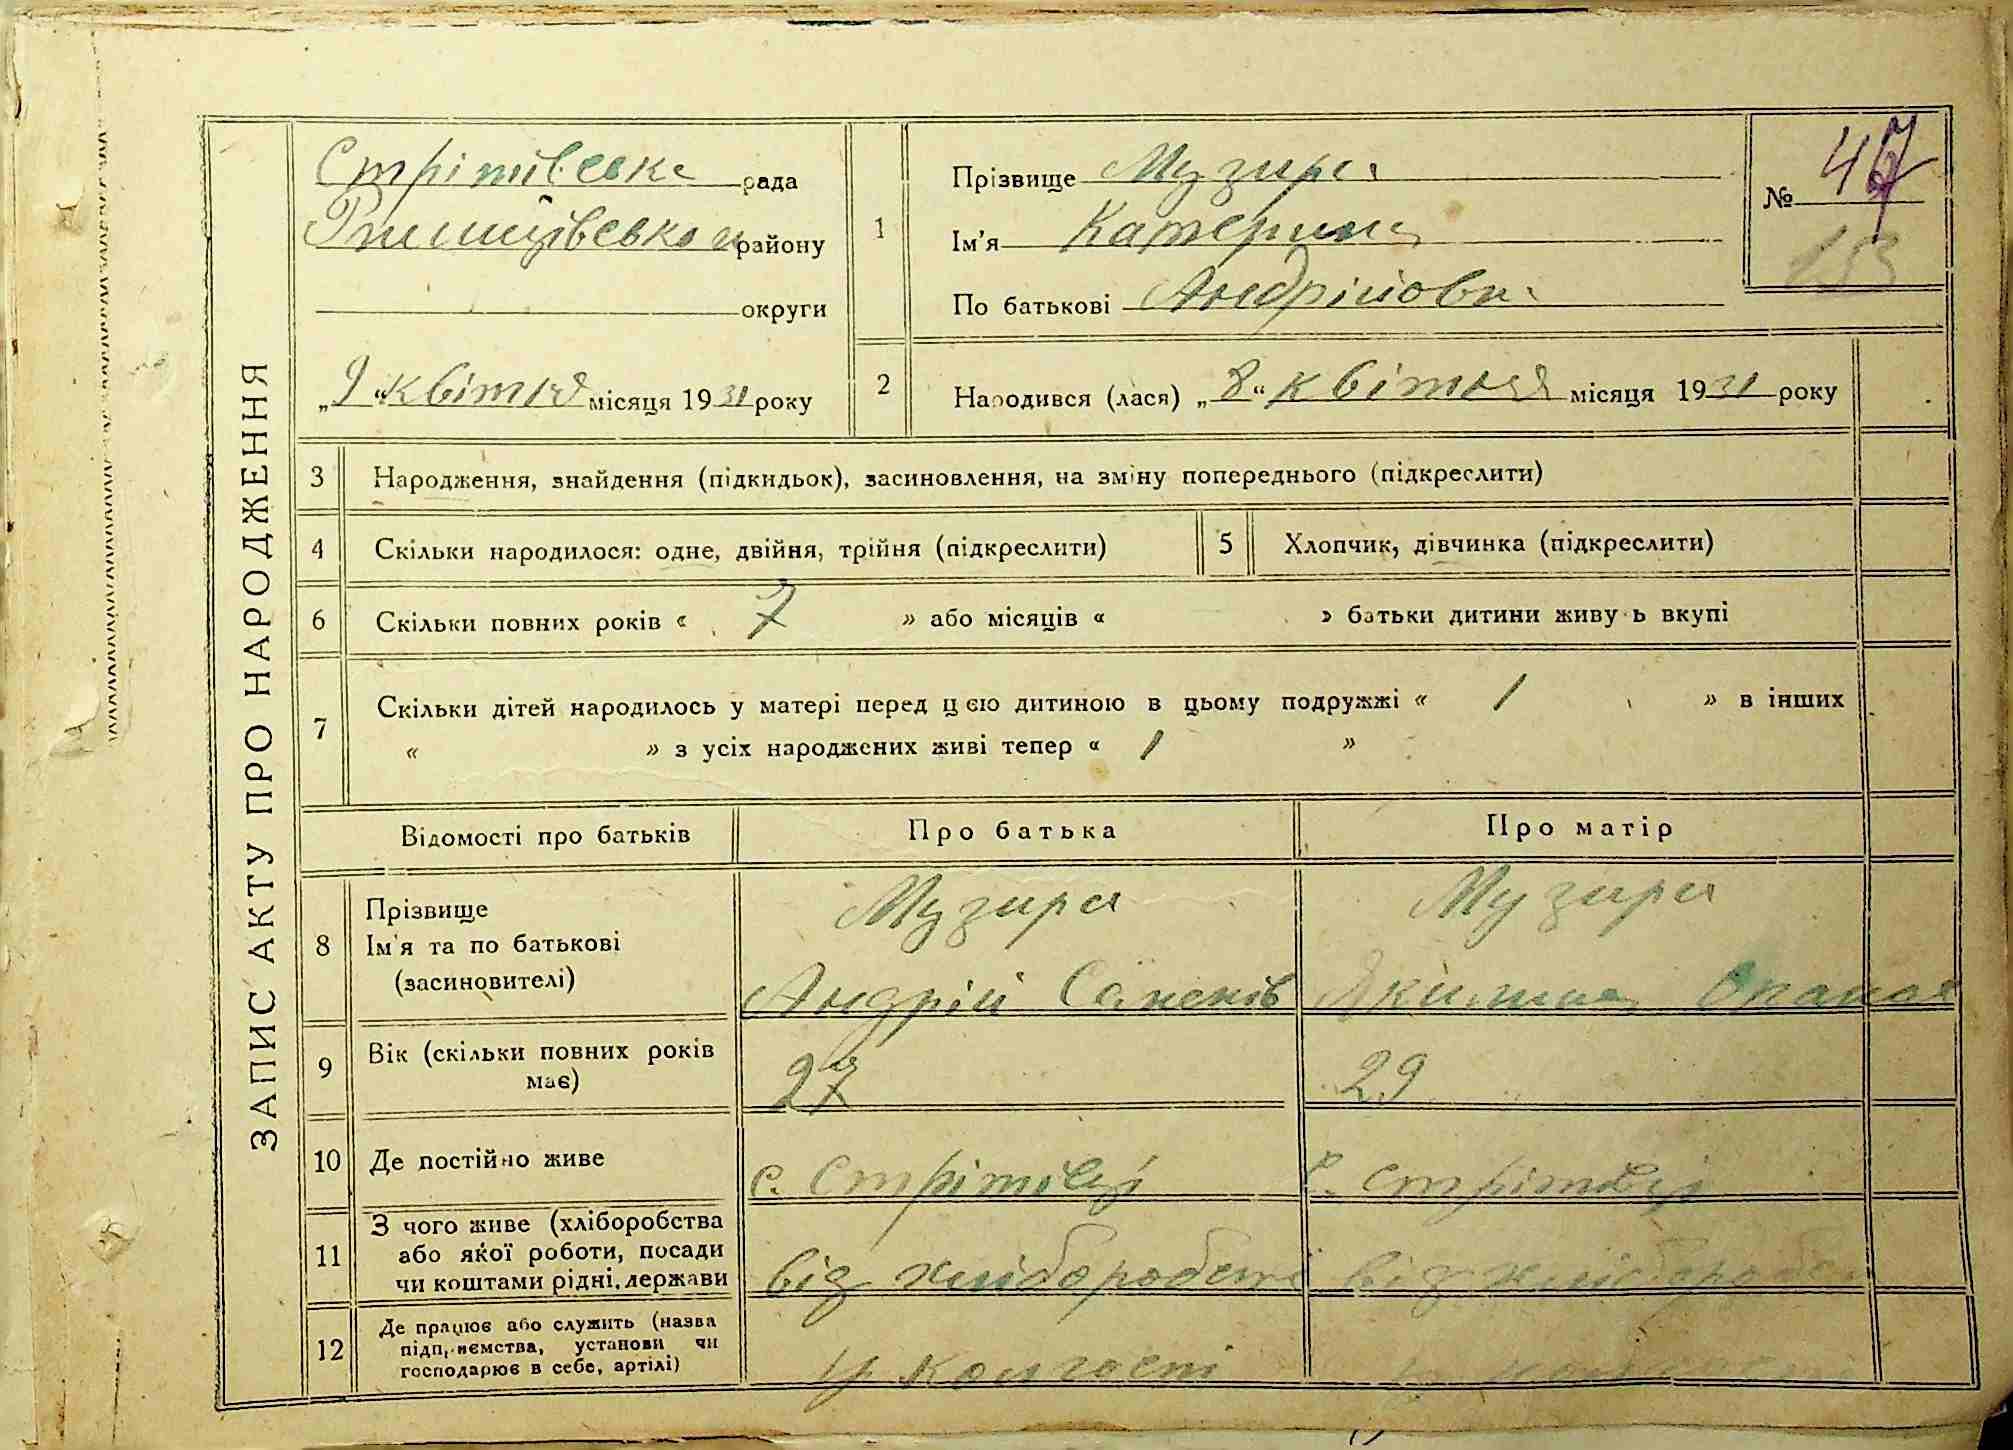 ЗАПИС АКТУ ПРО НАРОДЖЕННЯ
Стрітівська рада
Ржищівського району
округи
„9“ квітня місяця 1931 року
1
Прізвище Музира
Ім'я Катерина
По батькові Андріївна
№ 47
153
2
Народився (лася) „8“ квітня місяця 1931 року
3 Народження, знайдення (підкидьок), засиновлення, на зміну попереднього (підкреслити)
4 Скільки народилося: одне, двійня, трійня (підкреслити)
5 Хлопчик, дівчинка (підкреслити)
6 Скільки повних років « 7 » або місяців « » батьки дитини живуть вкупі
7 Скільки дітей народилось у матері перед цією дитиною в цьому подружжі « 1 » в інших
« » з усіх народжених живі тепер « 1 »
Відомості про батьків
Про батька
Про матір
8
Прізвище
Ім'я та по батькові
(засиновителі)
Музира
Андрій
Музира
9
Вік (скільки повних років
має)
27
29
10 Де постійно живе
с. Стрітівці
с. Стрітівці
11
З чого живе (хліборобства
або якої роботи, посади
чи коштами рідні, держави
від хліборобств
від хліборобст
12
Де працює або служить (назва
підприємства, установи чи
господарює в себе, артілі)
у колгоспі